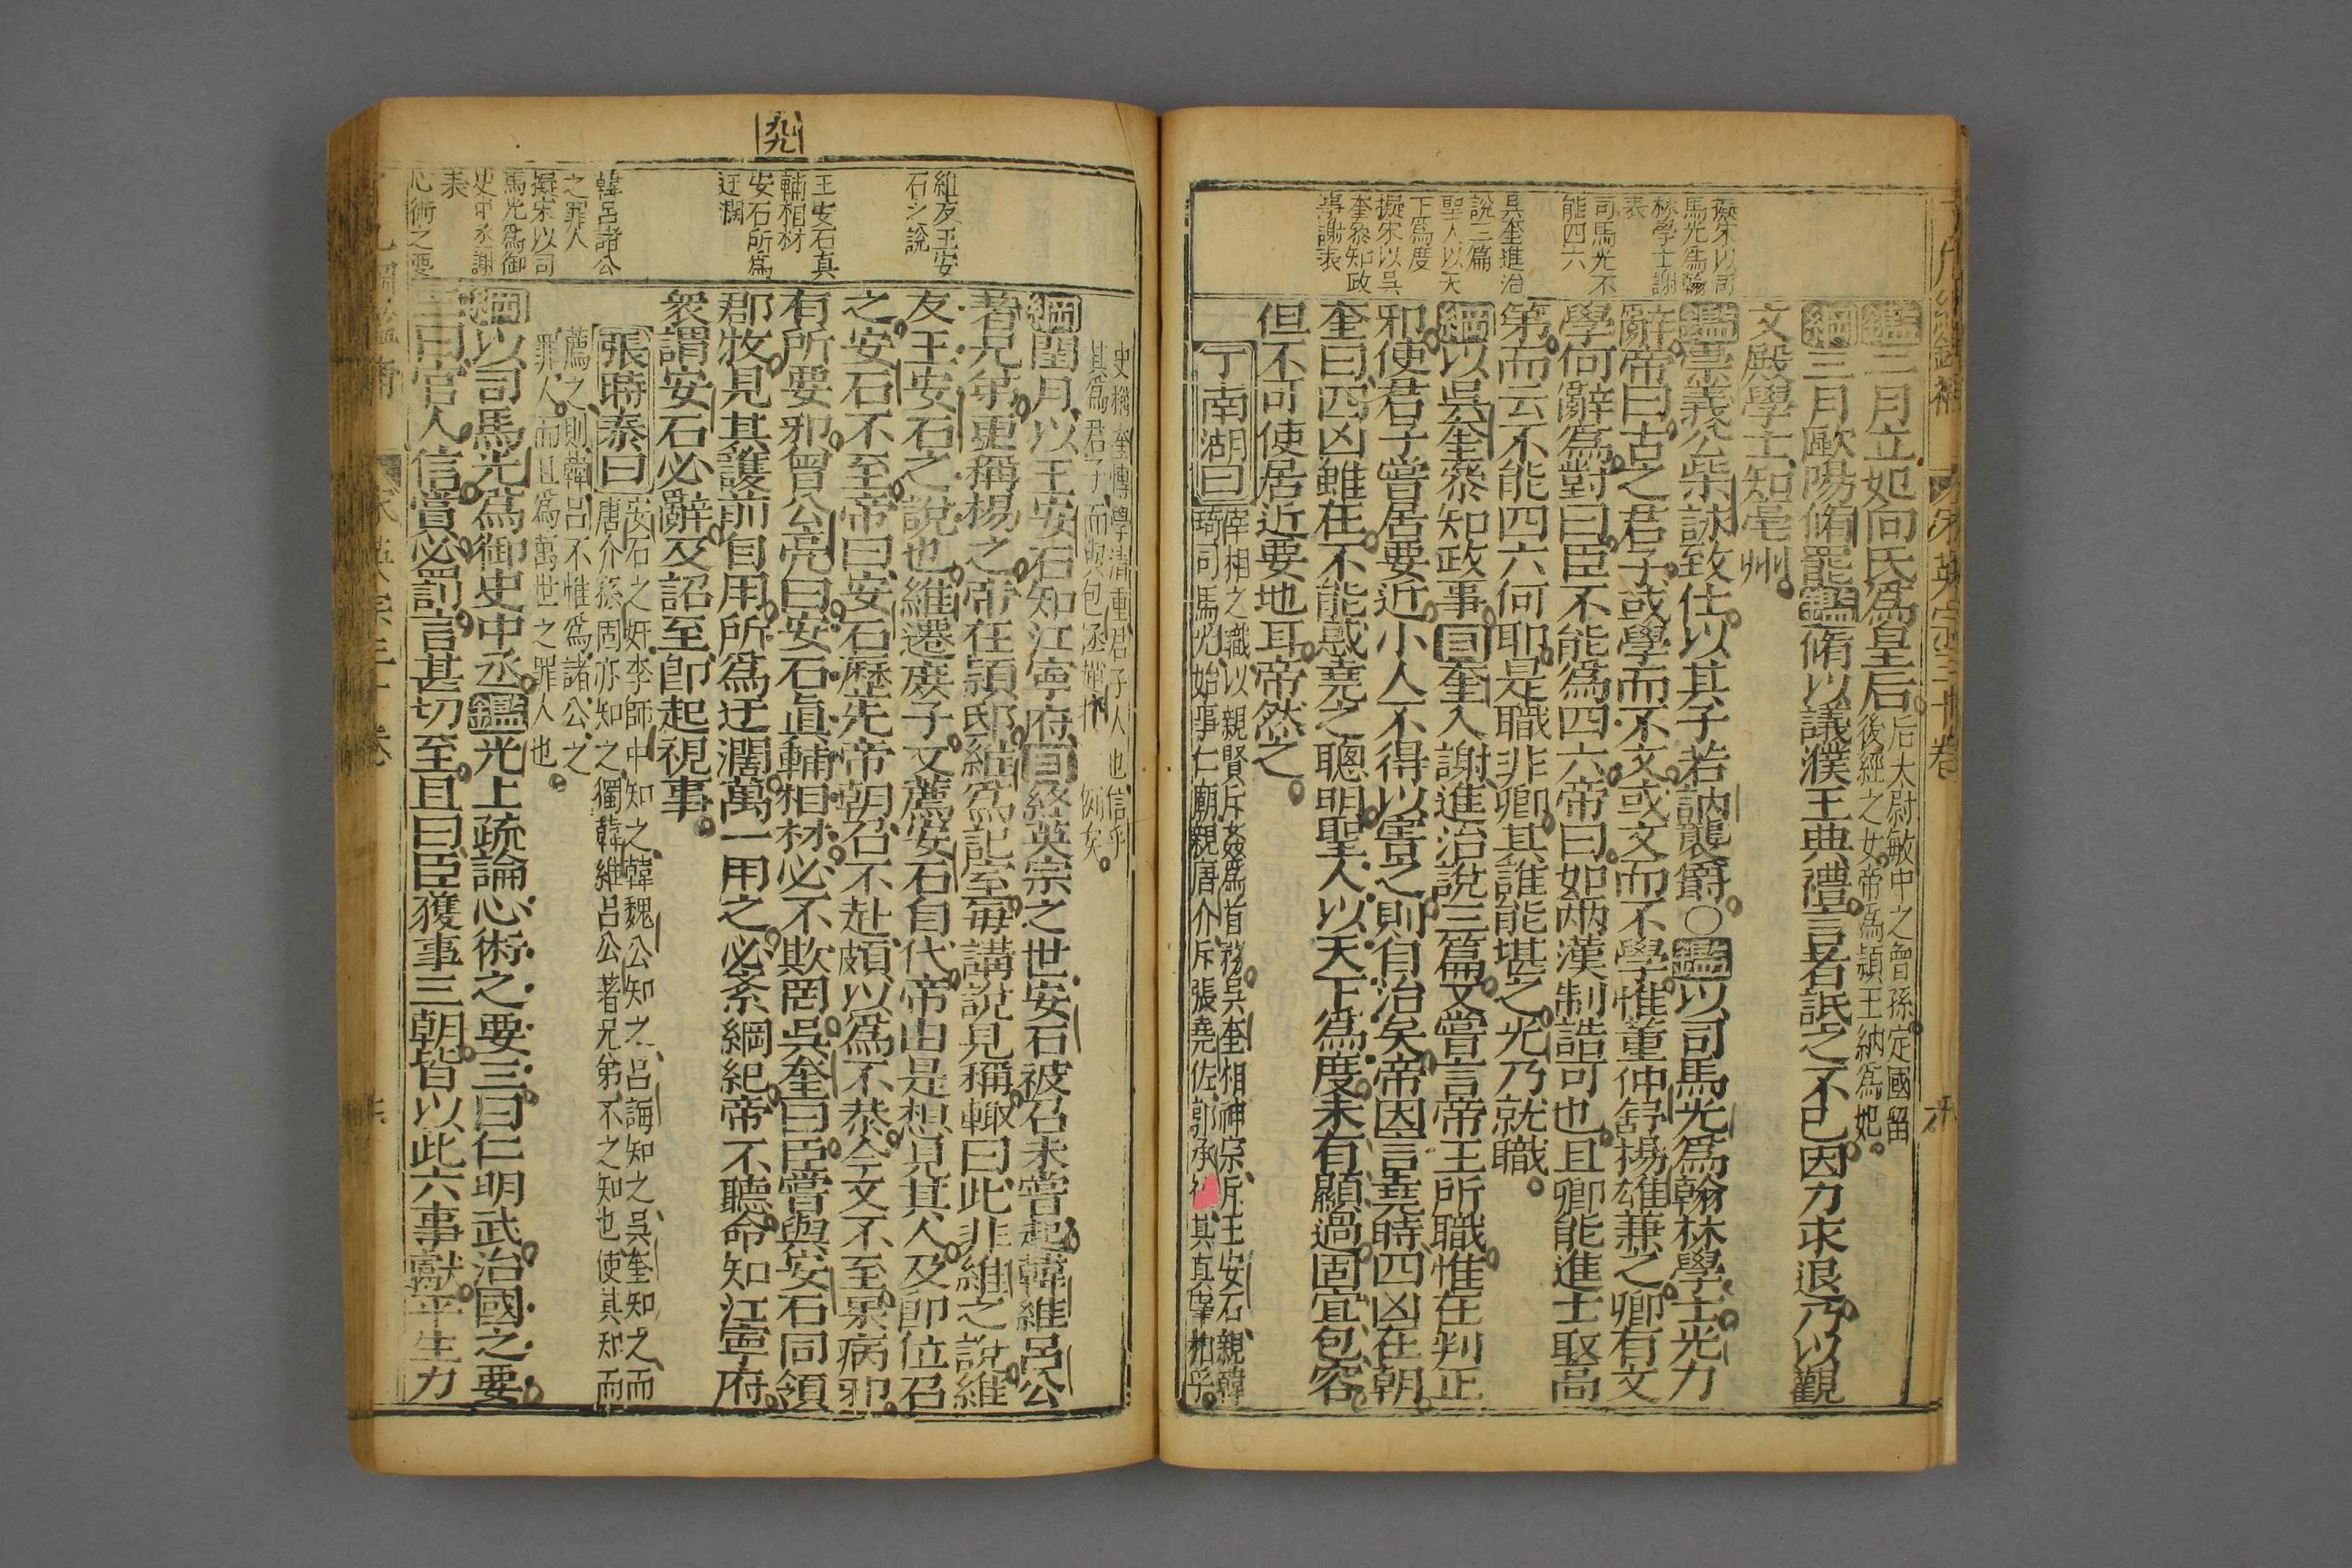 擬宋以司
馬光爲翰
林學士謝
表
司馬光不
能四六
吳奎進治
說三篇
聖人以天
下爲度
擬宋以吳
奎參知政
事謝表
鑑二月立妃向氏爲皇后
后太尉敏中之曾孫定國留
後經之女帝爲頴王納爲妃
綱三月歐陽脩罷鑑脩以議濮王典禮言者詆之不已因力求退乃以觀
文殿學士知亳州
鑑崇義公柴詠致仕以其子若訥襲爵〇鑑以司馬光爲翰林學士光力
辭帝曰古之君子或學而不文或文而不學惟董仲舒揚雄兼之卿有文
學何辭爲對曰臣不能爲四六帝曰如兩漢制誥可也且卿能進士取高
第而云不能四六何耶是職非卿其誰能堪之光乃就職
綱以吳奎叅知政事目奎入謝進治說三篇又嘗言帝王所職惟在判正
邪使君子嘗居要近小人不得以害之則自治矣帝因言堯時四凶在朝
奎曰四凶雖在不能惑堯之聰明聖人以天下爲度未有顯過固宜包容
但不可使居近要地耳帝然之
丁南湖曰
宰相之職以親賢斥姦爲首務吳奎相神宗斥王安石親韓
琦司馬光始事仁廟親唐介斥張堯佐郭承 其真宰相乎
宋英宗三十卷
九九
維友王安
石之說
王安石真
輔相材
安石所爲
迂濶
韓呂諸公
之罪人
擬宋以司
馬光爲御
史中丞謝
表
心術之要
史稱奎博學清重君子人也信乎
其爲君子而與包拯
綱閏月以王安石知江寧府目終英宗之世安石被召未嘗起韓維呂公
著兄弟更稱揚之帝在頴邸維爲記室每講說見稱輙曰此非維之說維
友王安石之說也維遷庶子又薦安石自代帝由是想見其人及即位召
之安石不至帝曰安石歷先帝朝召不赴頗以爲不恭今又不至果病邪
有所要邪曾公亮曰安石真輔相材必不欺罔吳奎曰臣嘗與安石同領
郡牧見其護前自用所爲迂濶萬一用之必紊綱紀帝不聽命知江寧府
衆謂安石必辭及詔至即起視事
張時泰曰
安石之奸李師中知之韓魏公知之呂誨知之吳奎知之而
唐介孫固亦知之獨韓維呂公著兄弟不之知也使其知而
薦之則韓呂不惟爲諸公之
罪人而且爲萬世之罪人也
綱以司馬光爲御史中丞鑑光上疏論心術之要三曰仁明武治國之要
三曰官人信賞必罰言甚切至且曰臣獲事三朝皆以此六事獻平生力
宋英宗三十卷